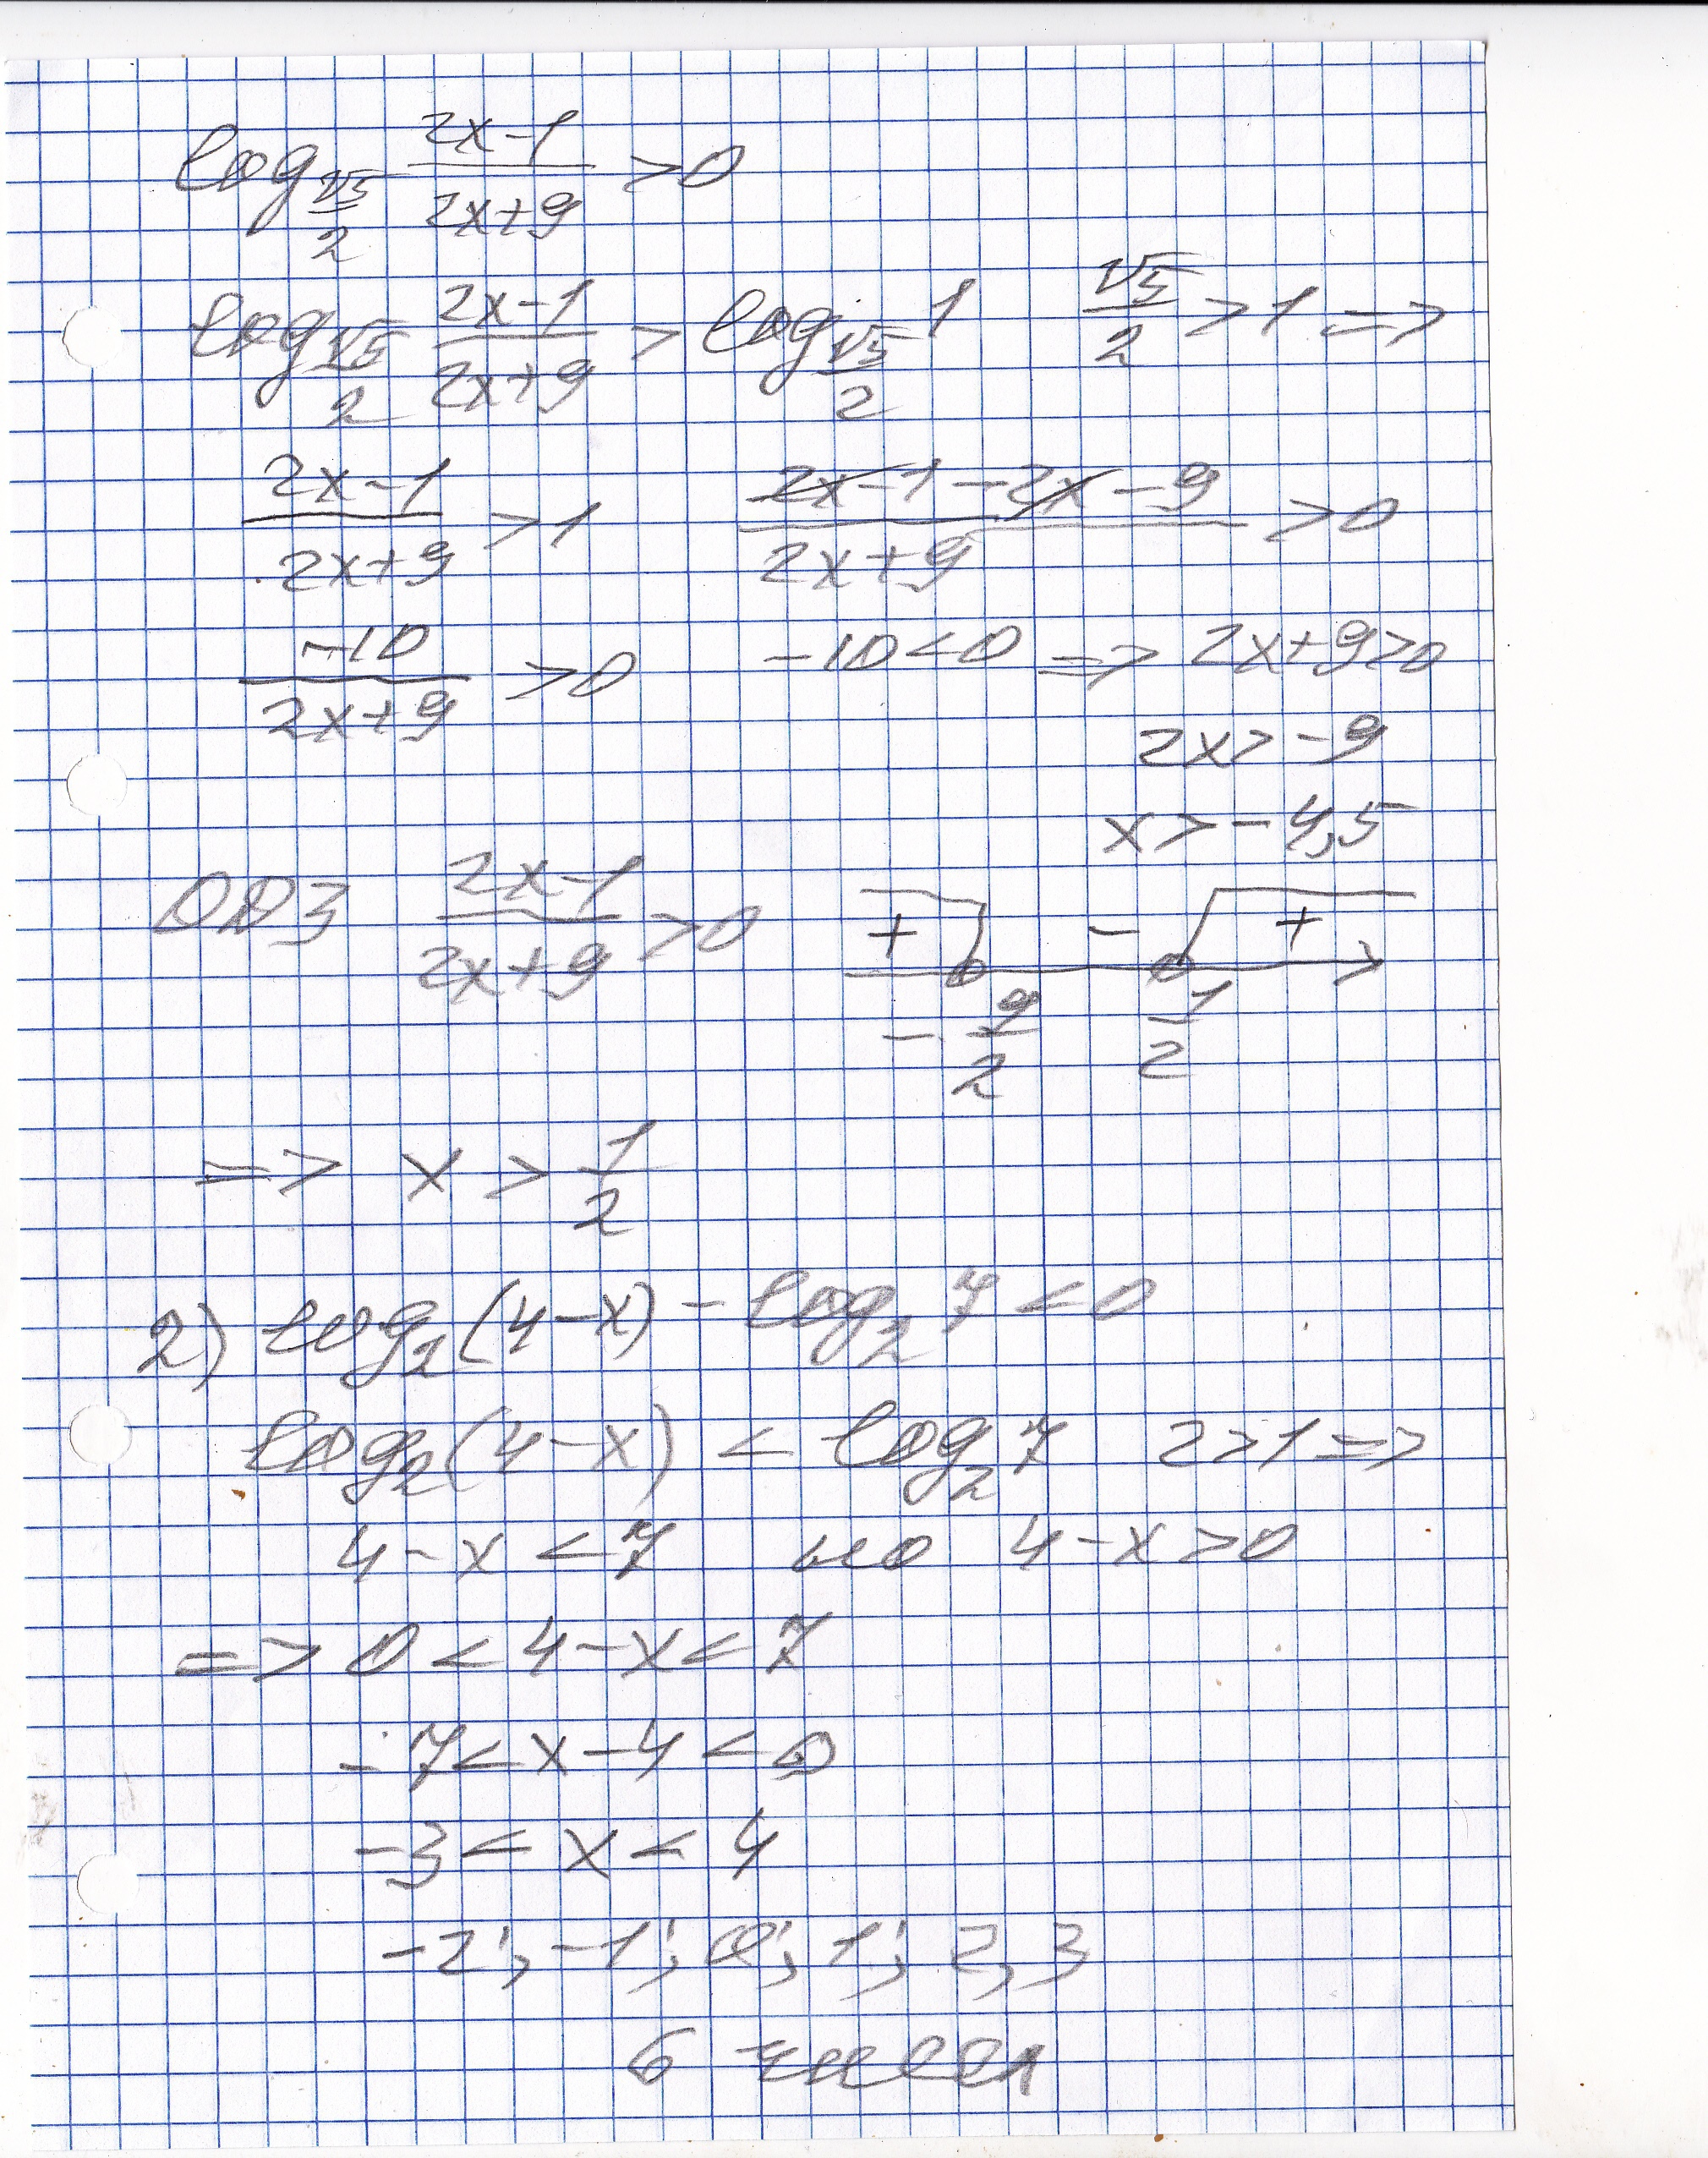 log_{√5/2} (2x-1)/(2x+9) >0
log_{√5/2} (2x-1)/(2x+9) > log_{√5/2} 1   √5/2 >1 =>
(2x-1)/(2x+9) >1   (2x-1-2x-9)/(2x+9) >0
-10/(2x+9) >0   -10<0 => 2x+9>0
2x>-9
x>-4,5
ОДЗ (2x-1)/(2x+9) >0   + - +
-9/2   1/2
=> x > 1/2
2) log₂(4-x) - log₂7 <0
log₂(4-x) < log₂7   2>1 =>
4-x <7   но 4-x>0
=> 0<4-x<7
-7<x-4<0
-3<x<4
-2; -1; 0; 1; 2, 3
6 чисел